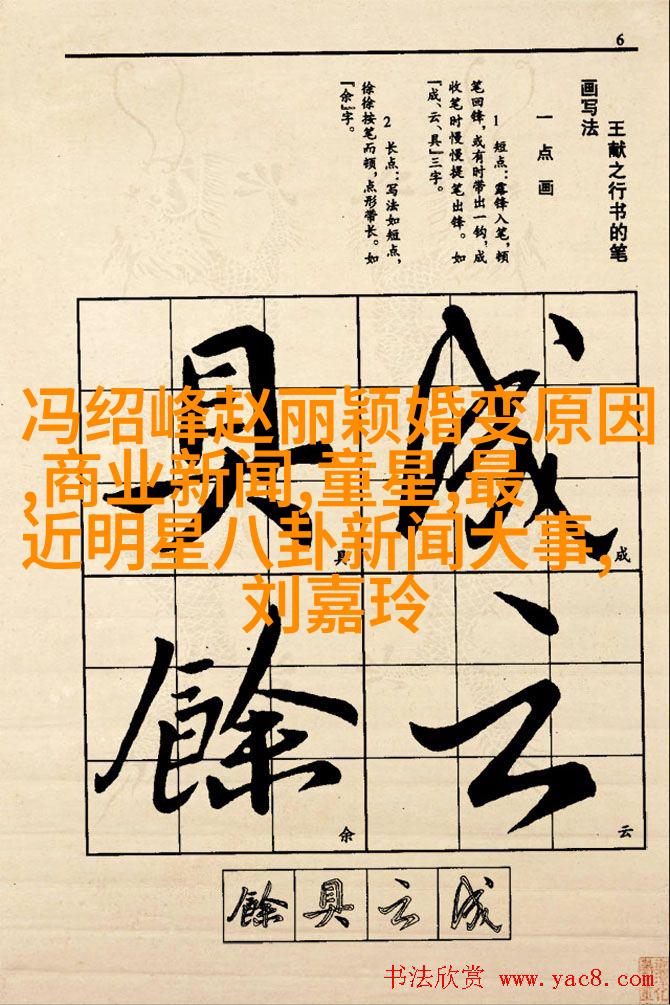 6
王献之行书的笔
画写法
一点画
1 短点：露锋入笔，顿
笔回锋，或有时带出一钩，成
收笔时慢慢提笔出锋。如
「成、云、具」三字。
2 长点：写法如短点，
徐徐按笔而顿，点形带长。如
「余」字。
冯绍峰赵丽颖婚变原因
,商业新闻,童星,最
近明星八卦新闻大事,
刘嘉玲
具 成
餘 云
具
成
余
云
餘 具 云 成
书法欣赏 www.yac8.com